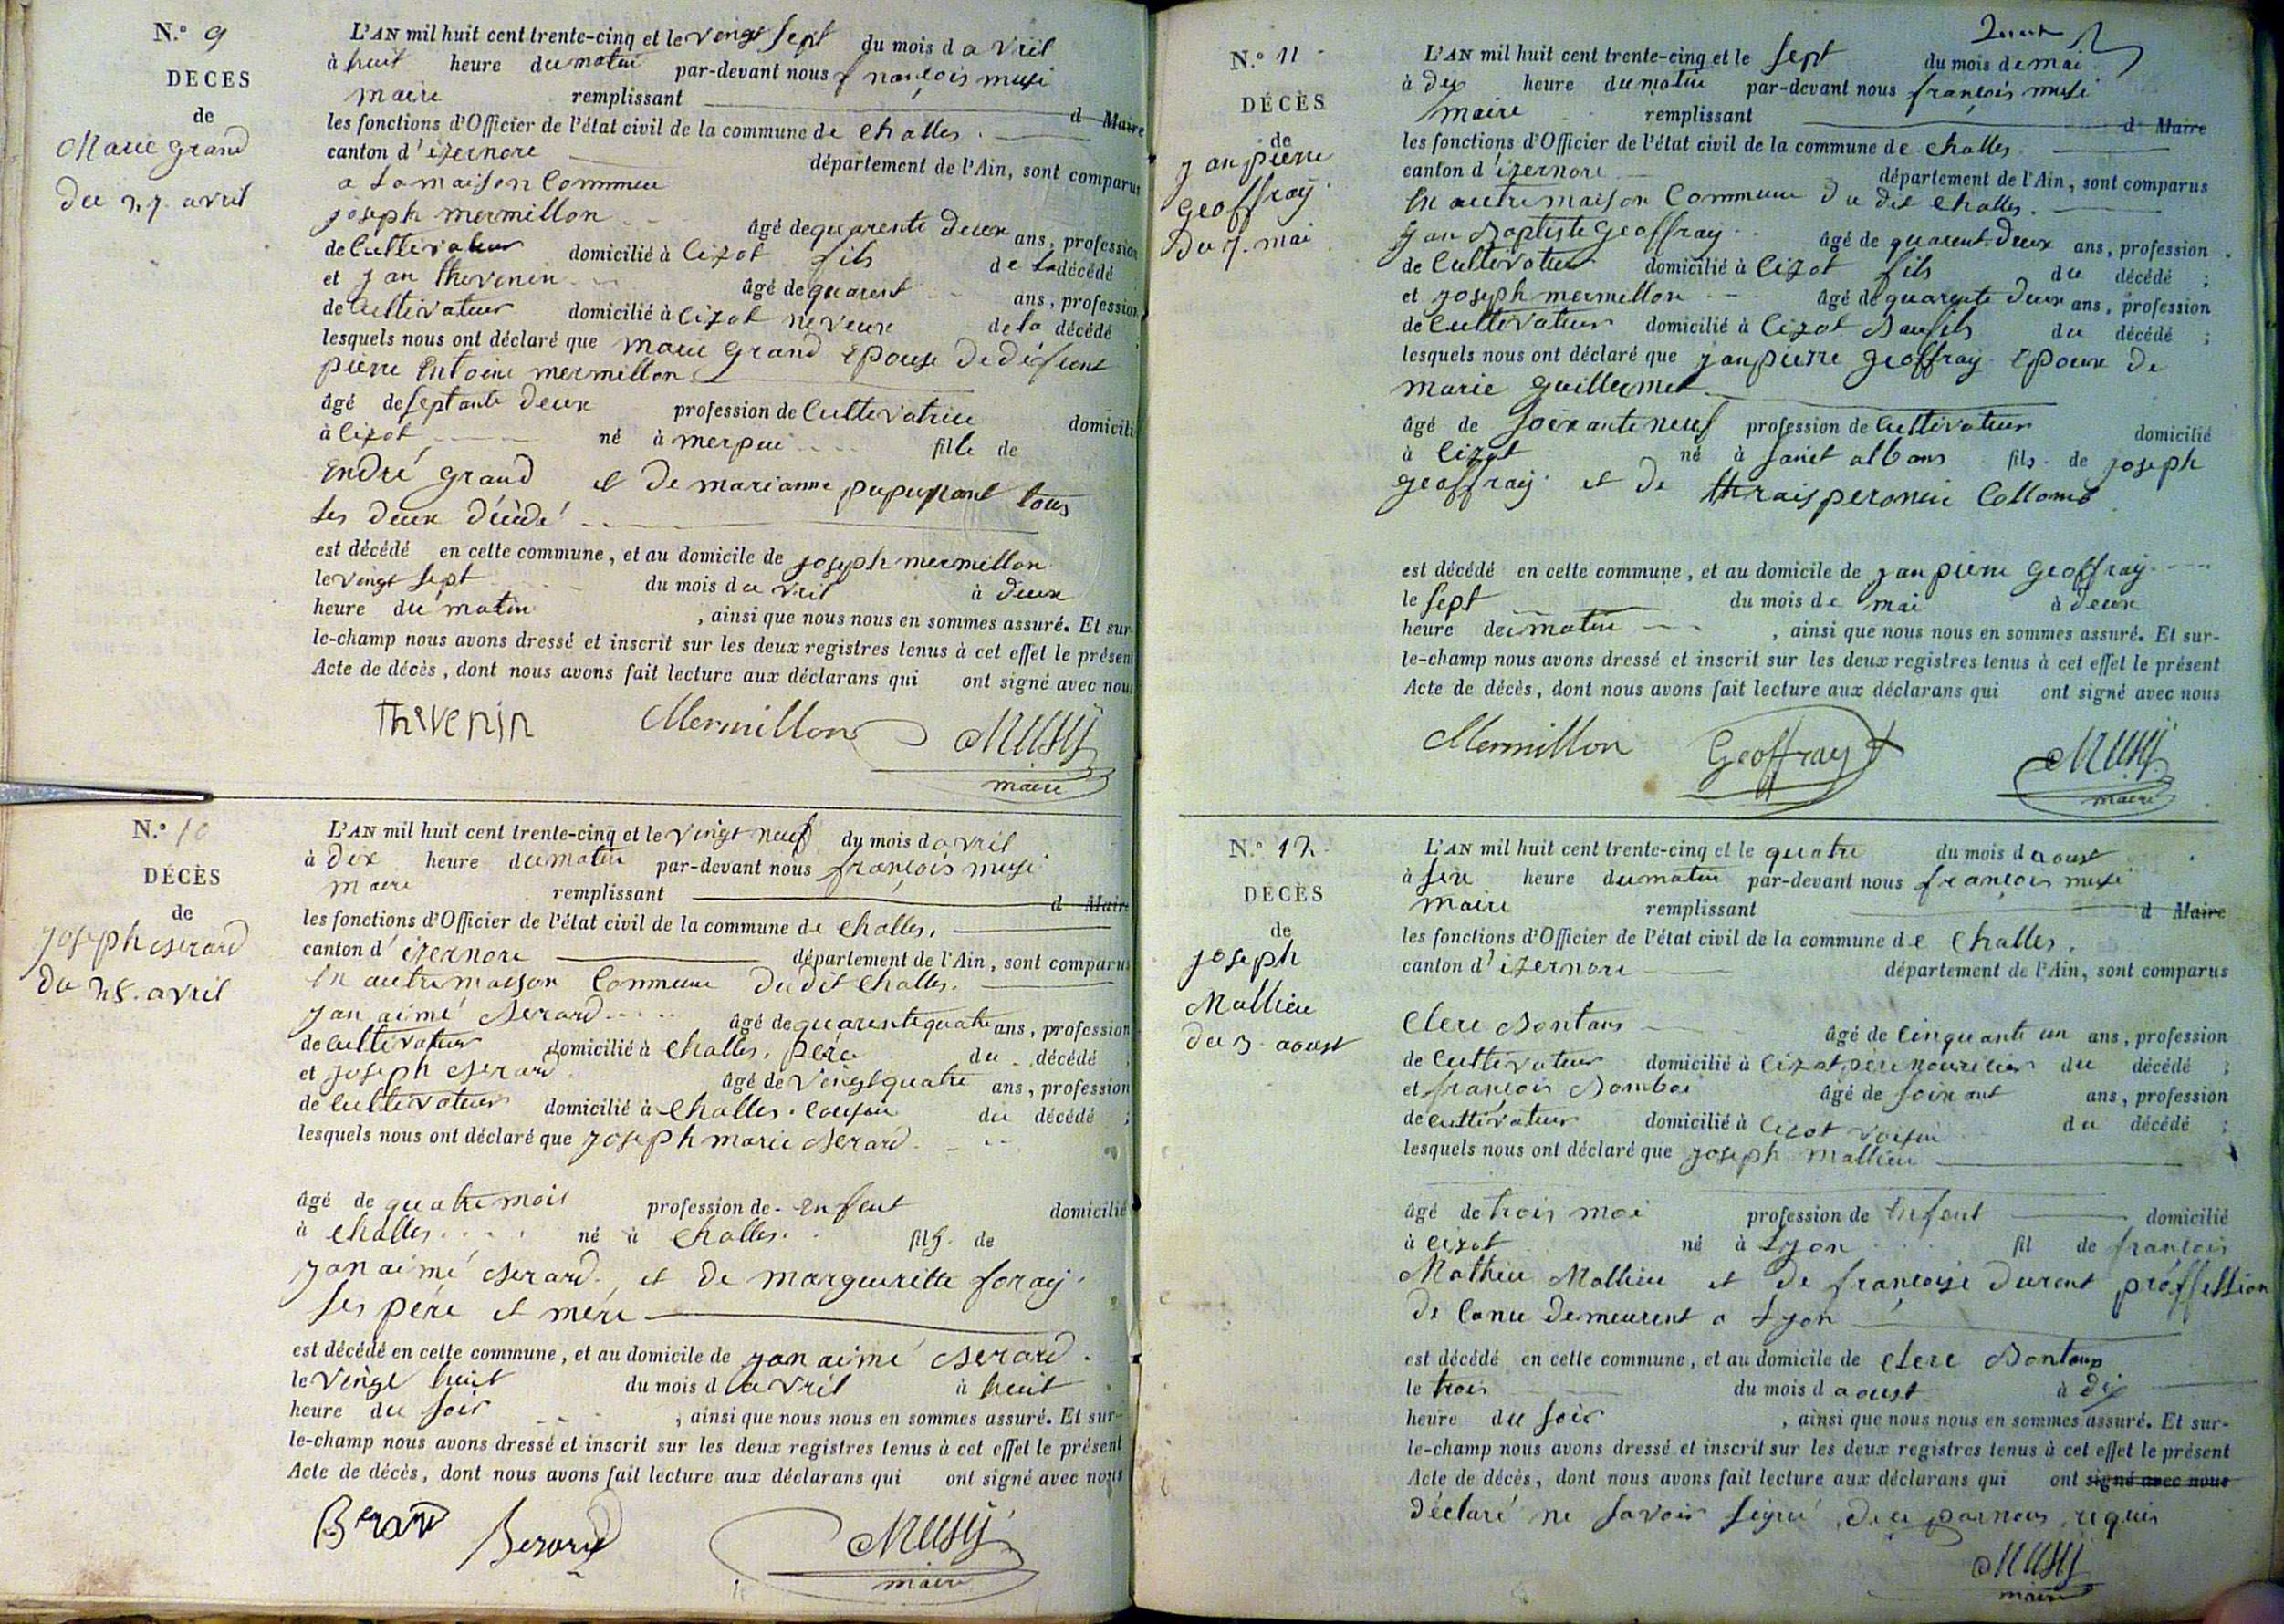 N.° 9
DÉCÈS
de
Marie grand
Du 27 avril
L'AN mil huit cent trente-cinq et le vingt sept du mois d avril
à huit heure du matin par-devant nous françois musi
maire remplissant d Maire
les fonctions d'Officier de l'état civil de la commune de challes
canton d'izernore département de l'Ain, sont comparus
a la maison Commeu
joseph mermillon âgé de quarente deux ans, profession
de Cultivateur domicilié à Cizot fils de la décédé
et jan thevenin âgé de quarent ans, profession
de Cultivateur domicilié à Cizot neveux de la décédé
lesquels nous ont déclaré que marie grand Epouse De défient
pierre Entoine mermillon
âgé de septante deux profession de Cultivatrice domicili
à Cizot né à merpui fille de
Endré grand et De marianne pupunant tous
les deux décédé
est décédé en cette commune, et au domicile de joseph mermillon
le vingt sept du mois d avril à deux
heure du matin, ainsi que nous nous en sommes assuré. Et sur-
le-champ nous avons dressé et inscrit sur les deux registres tenus à cet effet le présent
Acte de décès, dont nous avons fait lecture aux déclarans qui ont signé avec nous
Thevenin Mermillon Musy
maire
N.° 10
DÉCÈS
de
joseph Berard
Du 28. avril
L'AN mil huit cent trente-cinq et le vingt neuf du mois d avril
à dix heure du matin par-devant nous françois musi
maire remplissant d Maire
les fonctions d'Officier de l'état civil de la commune de challes.
canton d'izernore département de l'Ain, sont comparus
En autre maison Commeue Dudit challes.
jan aimé Berard âgé de quarente quatre ans, profession
de cultivateur domicilié à challes. père du décédé
et joseph Berard âgé de vingt quatre ans, profession
de cultivateur domicilié à challes. cousin du décédé ;
lesquels nous ont déclaré que joseph marie Berard
âgé de quatre mois profession de Enfent domicilié
à challes né à challes. fils de
jan aimé Berard et de margueritte foray
ses père et mére
est décédé en cette commune, et au domicile de jan aimé Berard.
le vingt huit du mois d avril à huit
heure du soir, ainsi que nous nous en sommes assuré. Et sur-
le-champ nous avons dressé et inscrit sur les deux registres tenus à cet effet le présent
Acte de décès, dont nous avons fait lecture aux déclarans qui ont signé avec nous
Berard Berard Musy
maire
N.° 11
DÉCÈS
de
jan pierre
geoffray
Du 7. mai
L'AN mil huit cent trente-cinq et le sept du mois de mai
à dix heure du matin par-devant nous françois musi
maire remplissant d Maire
les fonctions d'Officier de l'état civil de la commune de challes
canton d'izernore département de l'Ain, sont comparus
En autre maison Commeue Du dit challes.
jan Baptiste geoffray âgé de quarent. deux ans, profession
de Cultivateur domicilié à Cizot fils du décédé ;
et joseph mermillon âgé de quarente deux ans, profession
de Cultivateur domicilié à Cizot Baufils du décédé ;
lesquels nous ont déclaré que jan pierre geoffray Epoux De
marie guillermet
âgé de soixante neuf profession de cultivateur domicilié
à Cizot né à sainct albans fils de joseph
geoffray et De peronni Collomb
est décédé en cette commune, et au domicile de jan pierre geoffray
le sept du mois de mai à deux
heure du matin, ainsi que nous nous en sommes assuré. Et sur-
le-champ nous avons dressé et inscrit sur les deux registres tenus à cet effet le présent
Acte de décès, dont nous avons fait lecture aux déclarans qui ont signé avec nous
Mermillon Geoffray Musy
maire
N.° 12
DÉCÈS
de
joseph
Mallieu
du 3. aoust
L'AN mil huit cent trente-cinq et le quatre du mois d aoust
à sere heure du matin par-devant nous françois musi
maire remplissant d Maire
les fonctions d'Officier de l'état civil de la commune de challes.
canton d'izernore département de l'Ain, sont comparus
Clere Bontans âgé de Cinquante un ans, profession
de cultivateur domicilié à Cizot père nourricier du décédé ;
et françois Bomboi âgé de soixant ans, profession
de cultivateur domicilié à Cizot voisin du décédé ;
lesquels nous ont déclaré que joseph mallieu
âgé de trois moi profession de Enfent domicilié
à Cizot né à Lyon fil de françois
Mathieu Mallieu et de françoise Durent proffession
de Canu demeurent a Lyon
est décédé en cette commune, et au domicile de clere Bontans
le trois du mois d aoust à dix
heure du soir, ainsi que nous nous en sommes assuré. Et sur-
le-champ nous avons dressé et inscrit sur les deux registres tenus à cet effet le présent
Acte de décès, dont nous avons fait lecture aux déclarans qui ont signé avec nous
déclaré ne savoir signé de ce par nous requis
Musy
maire